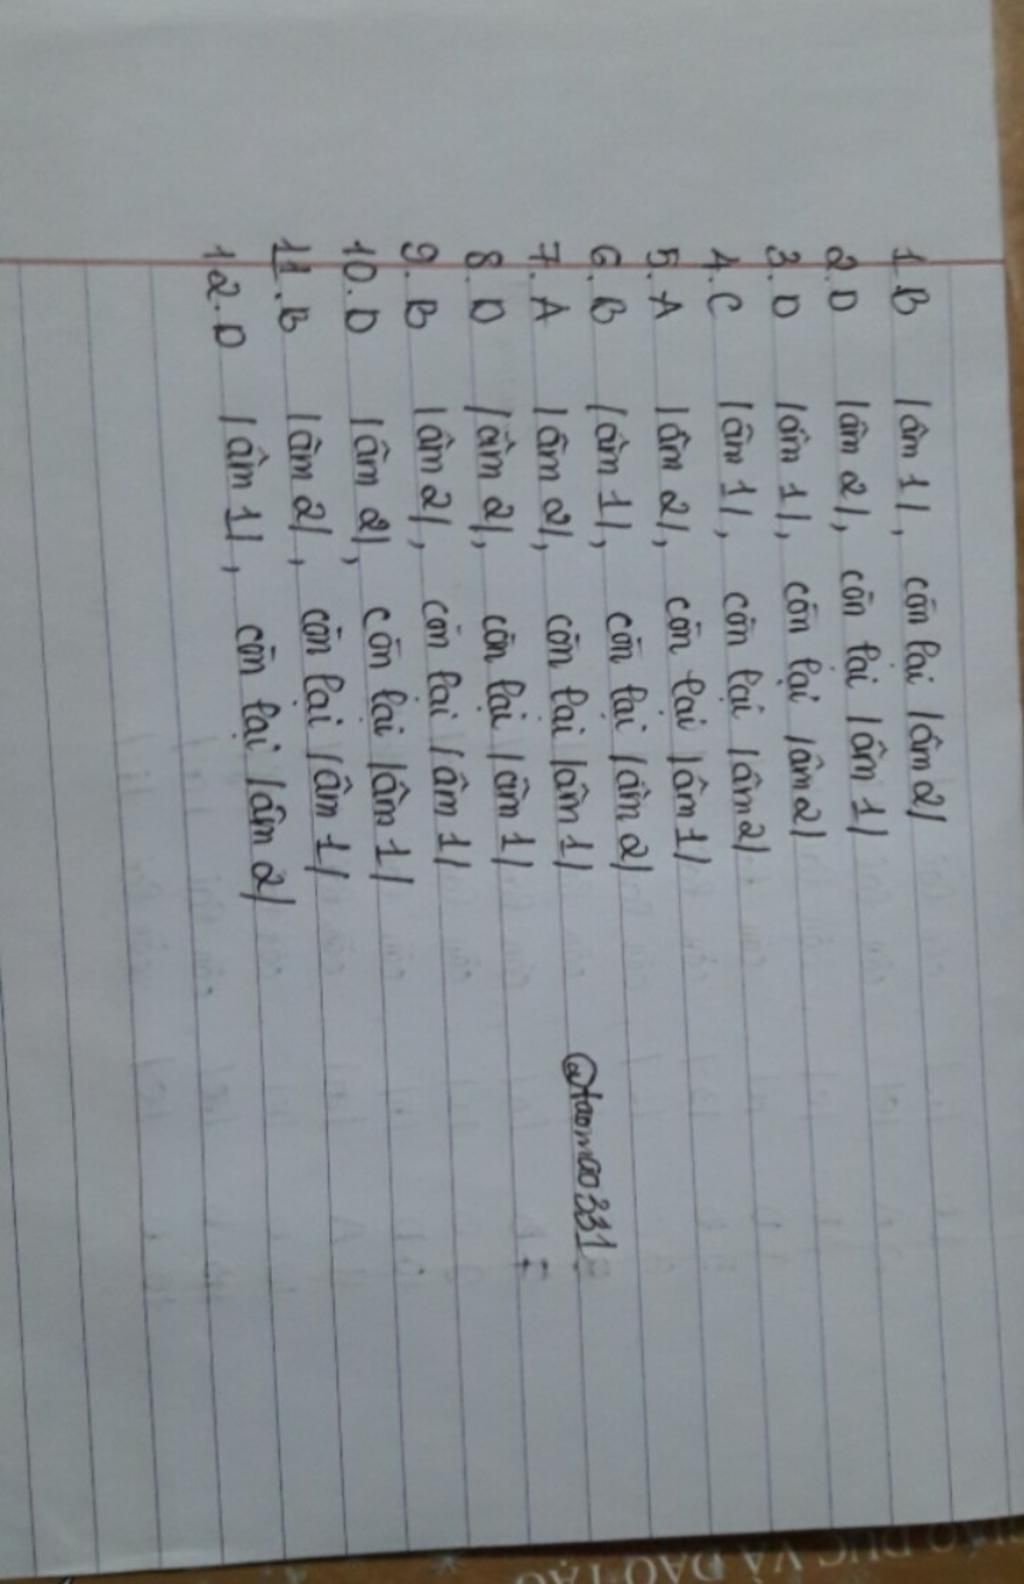 1.B /âm 1/, còn lại /âm 2/
2.D /âm 2/, còn lại /âm 1/
3.D /âm 1/, còn lại /âm 2/
4.C /âm 1/, còn lại /âm 2/
5.A /âm 2/, còn lại /âm 1/
6.B /âm 1/, còn lại /âm 2/
7.A /âm 2/, còn lại /âm 1/
8.D /âm 2/, còn lại /âm 1/
9.B /âm 2/, còn lại /âm 1/
10.D /âm 2/, còn lại /âm 1/
11.B /âm 2/, còn lại /âm 1/
12.D /âm 1/, còn lại /âm 2/
@taomoo331
DỤC VÀ ĐÀO TẠO